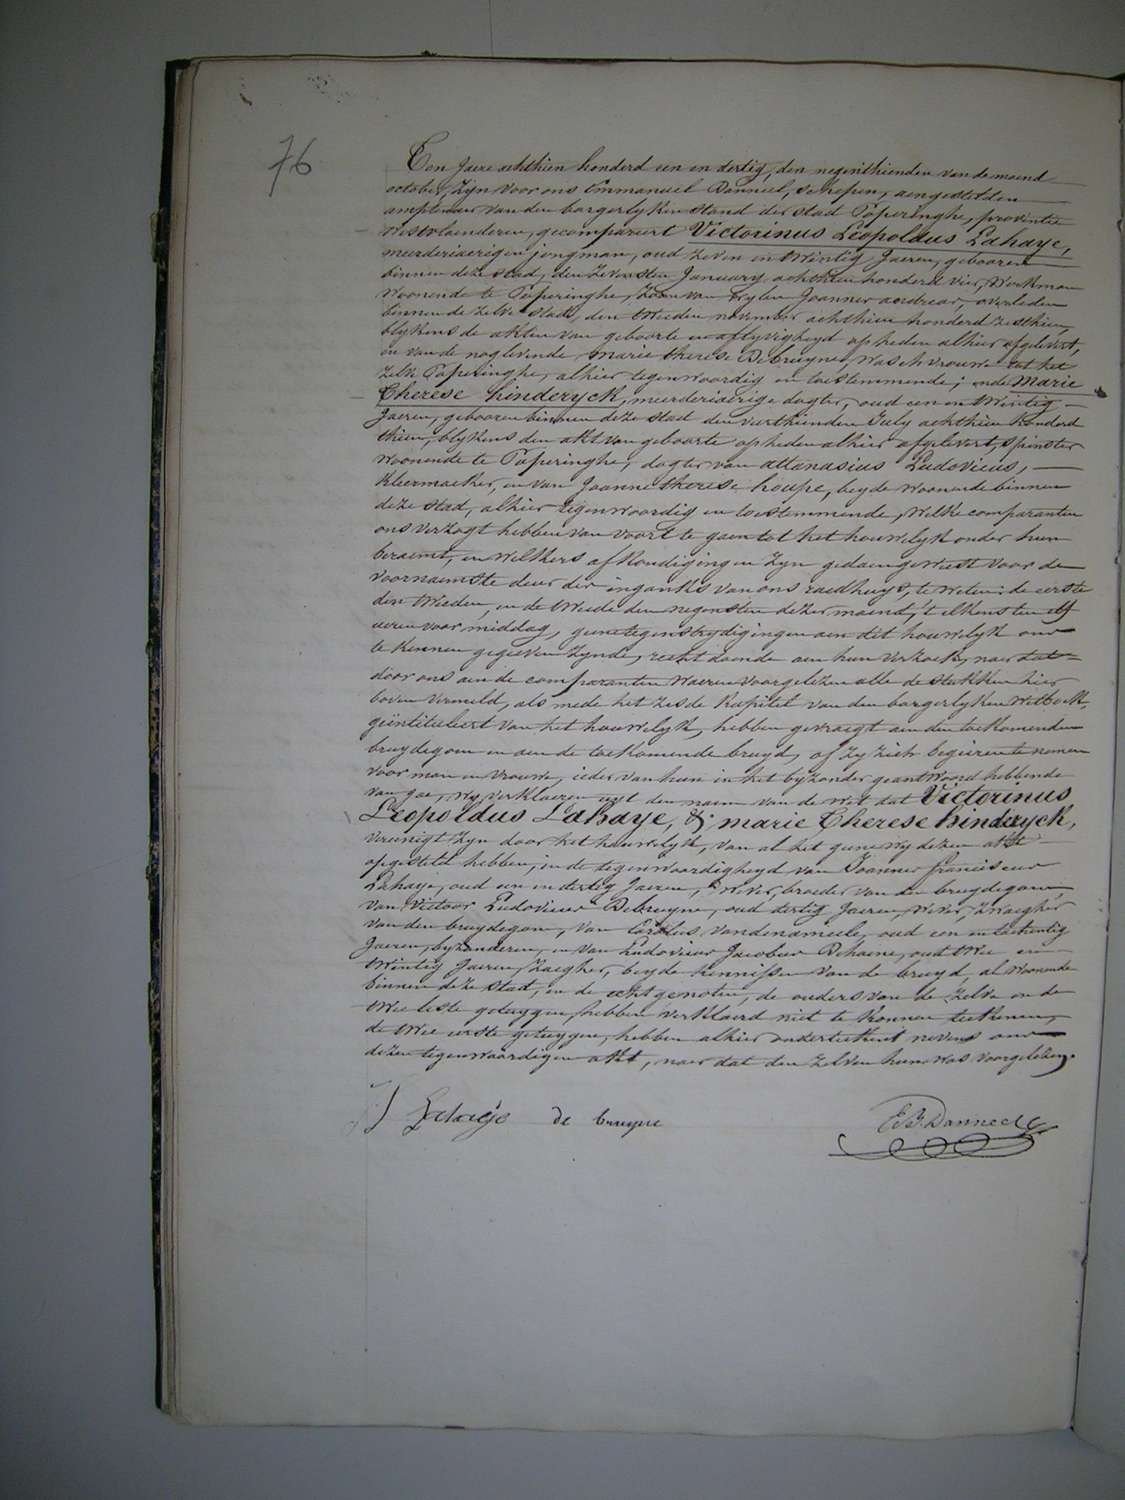 76
Ten Jaere achthien honderd een en dertig, den negenthienden van de maend
october, Zyn voor ons Emmanuel Danneel, schepen, aengestelden
amptenaer van den borgerlyken stand der stad Poperinghe, provintie
Westvlaenderen, gecompareert Victorinus Leopoldus Lahaye,
meerderjaerigen jongman, oud zeven en twintig Jaeren, gebooren
binnen deze stad, den zevensten January achthien honderd vier, Werkman
Woonende te Poperinghe, Zoon van wylen Joannes andreas, overleden
binnen de zelve stad, den tweeden november achthien honderd zesthien,
blykens de akten van geboorte en aflyvigheyd op heden alhier afgelevert,
en van de nog levende marie therese Debruyne, Waschvrouwe tot het
zelve Poperinghe, alhier tegenwoordig en toestemmende; ende Marie
Therese hinderyck, meerderjaerige dogter, oud een en twintig
Jaeren, gebooren binnen deze stad den vierthienden July achthien honderd
thien, blykens den akt van geboorte op heden alhier afgelevert, Spinster
woonende te Poperinghe, dogter van attanasius Ludovicus,
Kleermaeker, en van Joanne therese houpe, beyde woonende binnen
deze stad, alhier tegenwoordig en toestemmende, Welke comparanten
ons verzogt hebben van voort te gaen tot het houwelyk onder hun
beraemt, en welkers afkondigingen Zyn gedaen geweest voor de
voornaemste deur der inganks van ons raedhuys, te weten: de eerste
den tweeden, en de tweede den negensten dezer maend, 't elkens ten elf
uren voor middag, geene tegenstrydigingen aen dit houwelyk ons
te kennen gegeven Zynde, recht doende aen hun verzoek, naer dat
door ons aen de comparanten Waeren voorgelezen alle de stukken hier
boven vermeld, als mede het zesde kapitel van den borgerlyken Wetboek,
geïntituleert van het houwelyk, hebben gevraegt aen den toekomenden
bruydegom en aen de toekomende bruyd, of Zy Zich begeeren te nemen
voor man en vrouwe, ieder van hun in het byzonder geantwoord hebbende
van jae, wy verklaeren uyt den naem van de wet dat Victorinus
Leopoldus Lahaye, & marie Therese hinderyck,
vereenigt Zyn door het houwelyk, van al het gene wy dezen akt
opgesteld hebben, in de tegenwoordigheyd van Joannes franciscus
Lahaye, oud een en dertig Jaeren, Wever, broeder van den bruydegom,
van Victoor Ludovicus Debruyne, oud dertig Jaeren, Wever, Zwaegher
van den bruydegom, van Carolus vandenameele, oud een en tachentig
Jaeren, byzonderen, en van Ludovicus Jacobus Dehaene, oud twee en
twintig Jaeren, Zaegher, beyde kennissen van de bruyd, al woonende
binnen deze stad, en de echtgenoten, de ouders van de zelve en de
twee leste getuygen, hebben verklaerd niet te konnen teekenen,
de twee eerste getuygen, hebben alhier onderteekent nevens ons
dezen tegenwoordigen akt, naer dat den zelven hun was voorgelezen.
J Lahaeje de bruyne E B. Danneel